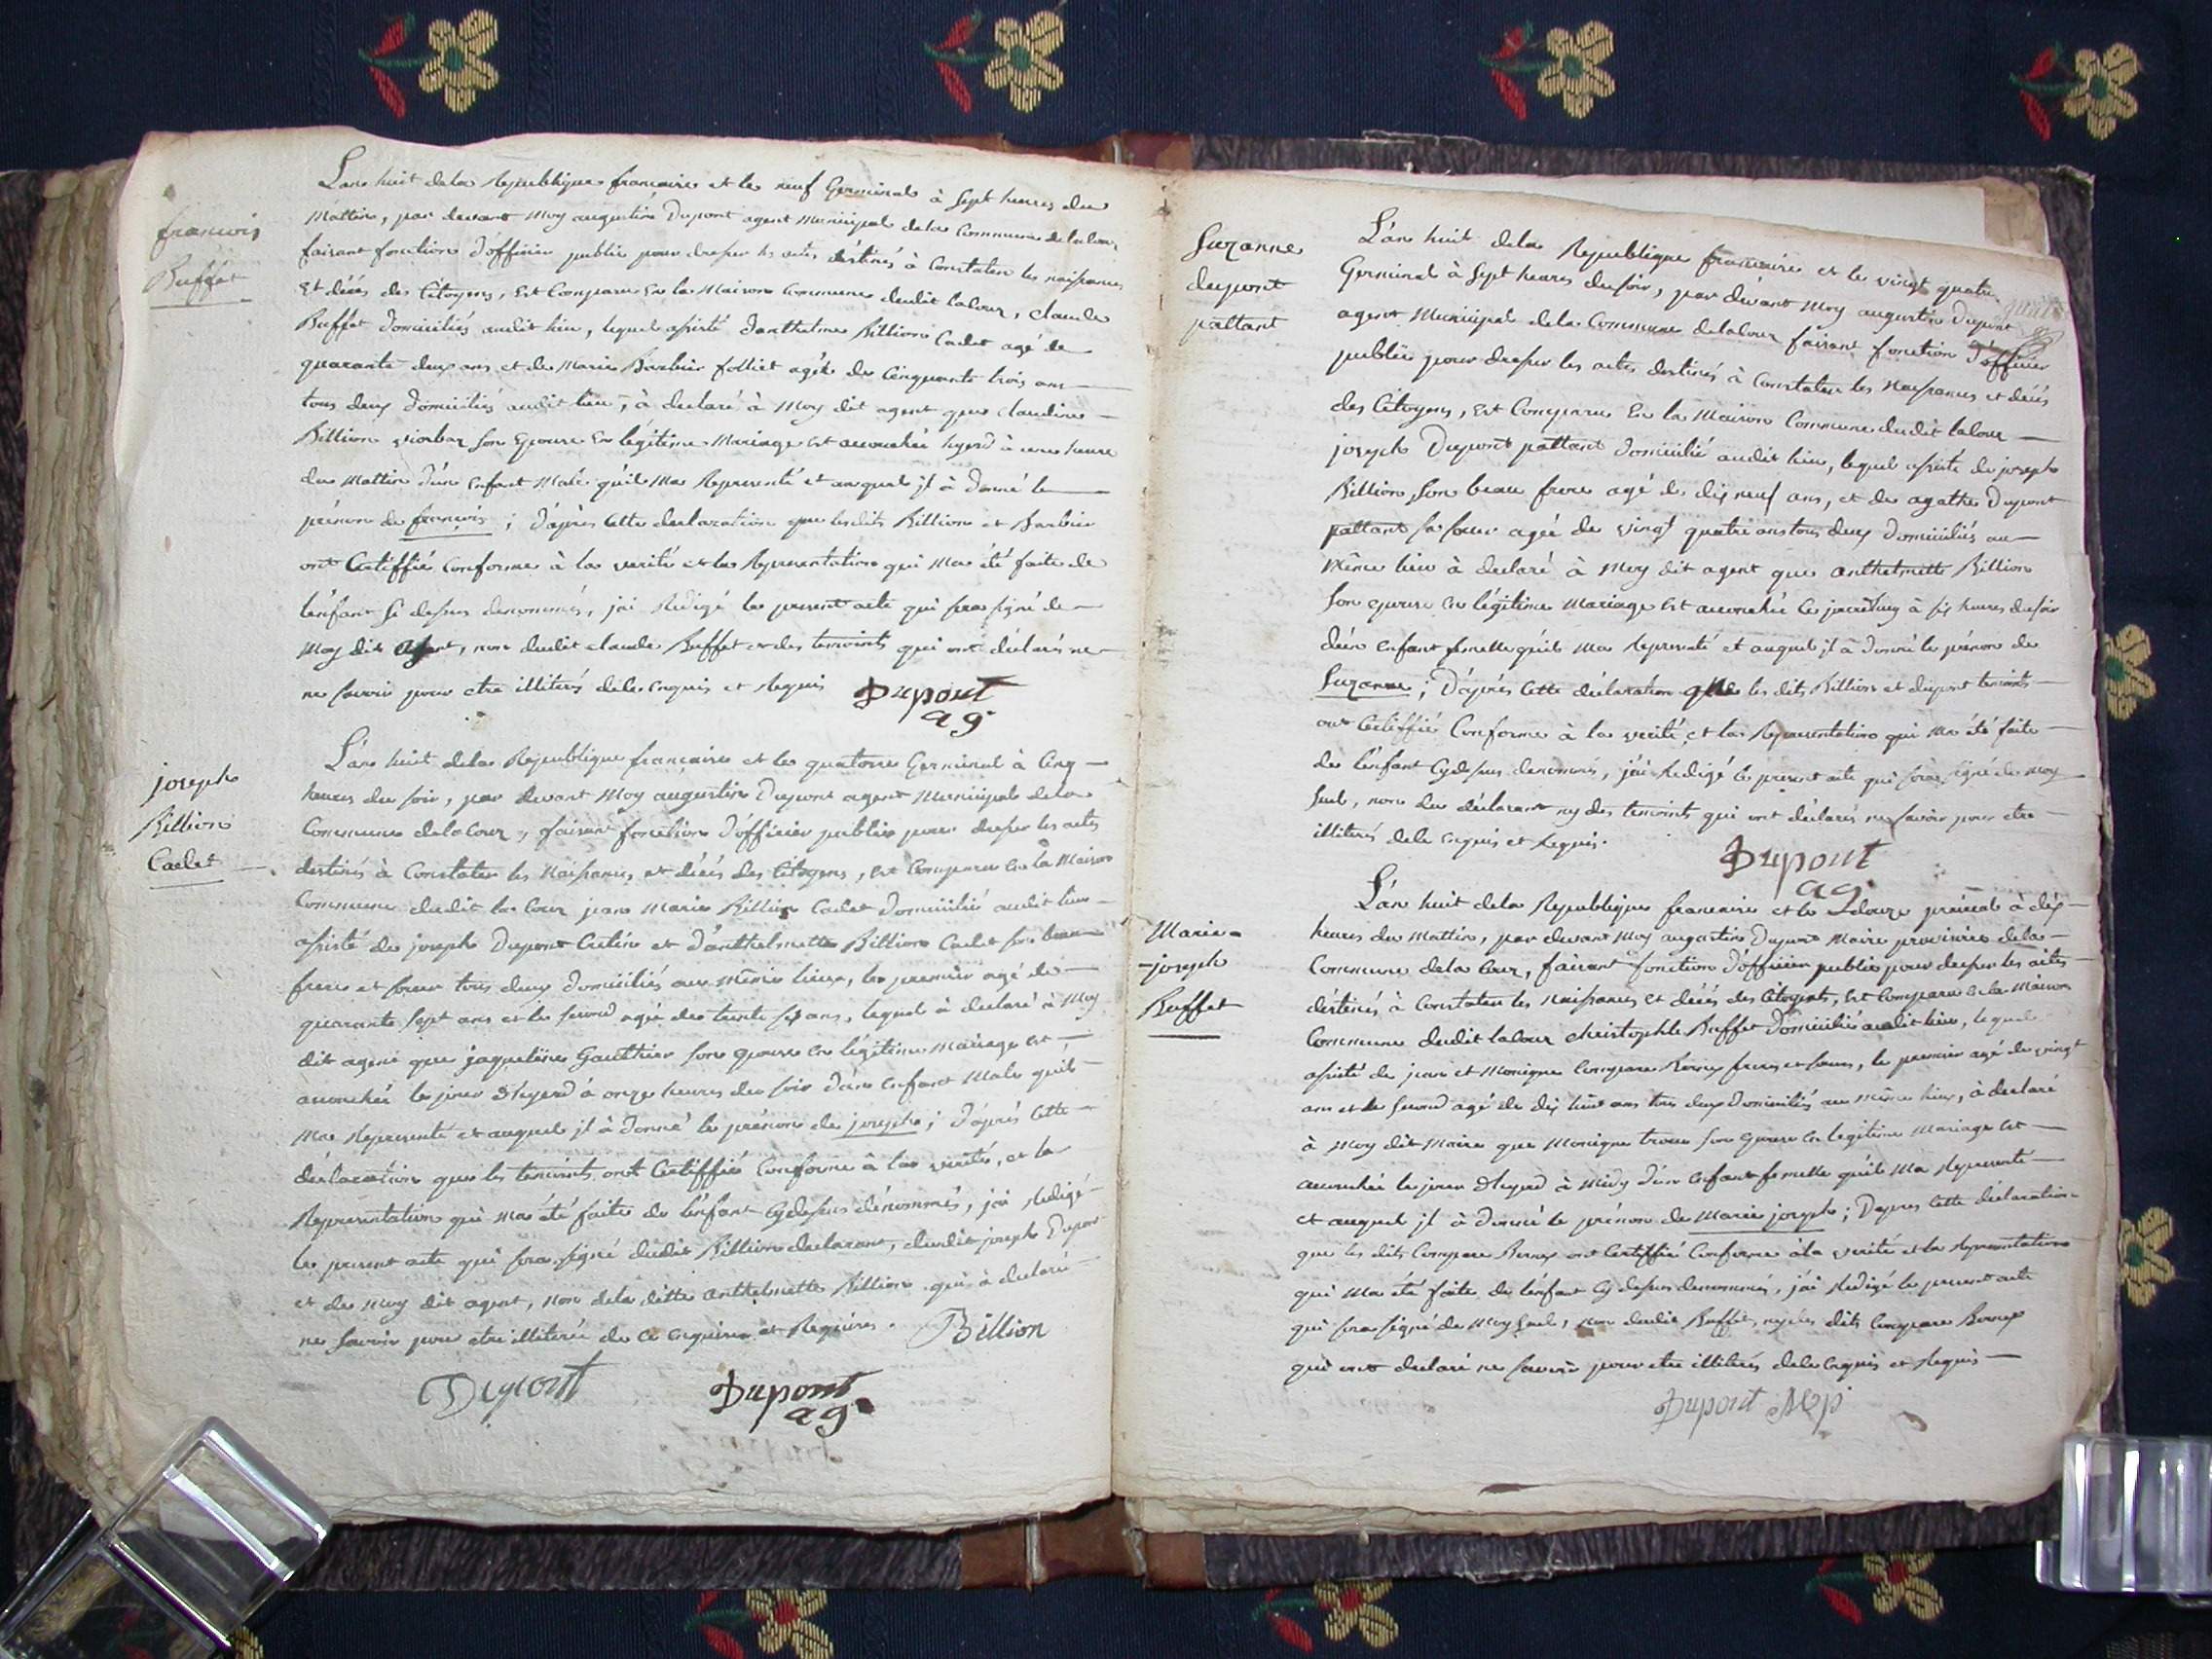 françois
Buffet
L'an huit de la Republique francaise et le neuf Germinal à Sept heures du
Mattin, par devant Moy augustin Dupont agent Municipal de la Commune delalour,
faisant fonction d'officier public pour dresser les actes déstinés à Constater les naissances
Et décés des Citoyens, Est Comparu En la Maison Commune dudit lalour, claude
Buffet domicilié audit lieu, lequel assisté danthelme Billion Cadet agé de
quarante deux ans et de Marie Barbier folliet agée de Cinquante trois ans
tous deux domiciliés audit lieu, à declaré à Moy dit agent que claudine
Billion son Epouse En légitime Mariage est accouchée hyerd à une heure
du Mattin d'un Enfant Male qu'il Ma Representé et auquel jl à donné le
prénom de françois ; d'après Cette declaration que lesdits Billion et Barbier
ont Certiffié Conforme à la verité et la Representation qui Ma été faite de
l'enfant Si dessus denommés, jai Redigé le present acte qui sera signé de
Moy dit agent, non dudit claude Buffet et des temoints qui ont déclarés ne
ne savoir pour etre illiterés dele Enquis et Requis
Dupont
ag
joseph
Billion
Cadet
L'an huit dela Republique française et le quatorze Germinal à Cinq
heures du soir, par devant Moy augustin Dupont agent Municipal dela
Commune delalour, faisant fonction d'officier public pour dresser les actes
destinés à Constater les Naissances et décés des Citoyens, Est Comparu En la Maison
Commune dudit la lour jean Marie Billion Cadet domicilié audit lieu
assisté de joseph Dupont Cretin et d'anthelmette Billion Cadet son beau
frere et soeur tous deux domiciliés au même lieux, le premier agé de
quarante sept ans et le second agé de trente six ans, lequel à declaré à Moy
dit agent que jaqueline Gauthier son Epouse en légitime mariage est
accouchée le jour d'hyerd à onze heures du soir d'un Enfant Male qu'il
Ma Representé et auquel jl à donné le prénom de joseph ; d'après Cette
déclaration que les temoints ont Certiffié Conforme à la verité, et la
Representation qui Ma été faite de l'enfant Cydessus dénommés, jai Redigé
le present acte qui sera signé dudit Billion declarant, dudit joseph Dupont
et de Moy dit agent, Non dela ditte anthelmette Billion qui à declaré
ne savoir pour etre illiterée de ce Enquise et Requise. Billion
Dupont
Dupont
ag
Suzanne
dupont
pattant
L'an huit dela Republique francaise et le vingt quatre
Germinal à Sept heures du soir, par devant Moy augustin Dupont
agent Municipal dela Commune delalour faisant fonction d'officier
publie pour dresser les actes destinés à Constater les Naissances et décés
des Citoyens, Est Comparu En la Maison Commune dudit lalour
joseph Dupont pattant domicilié audit lieu, lequel assisté de joseph
Billion Son beau frere agé de dix neuf ans, et de agathe Dupont
pattant sa soeur agée de vingt quatre ans tous deux domiciliés au
même lieu à declaré à Moy dit agent que anthelmette Billion
Son Epouse en légitime Mariage est accouchée Ce jourdhuy à six heures du soir
d'un Enfant femelle qu'il Ma Representé et auquel jl à donné le prénom de
Suzanne ; d'après Cette déclaration que les dits Billion et dupont temoints
ont Certiffié Conforme à la verité et la Representation qui Ma été faite
de l'enfant Cydessus denommés, jai Redigé le present acte qui sera signé de moy
seul, non du déclarant ny des temoints qui ont déclarés ne savoir pour etre
illiterés dele Enquis et Requis.
Dupont
ag
Marie
joseph
Buffet
L'an huit dela Republique francaise et le douze prairial à dix
heures du Mattin, par devant Moy augustin Dupont Maire provisoire dela
Commune dela lour, faisant fonction d'officier public pour dresser les actes
déstinés à Constater les Naissances et décés des Citoyens, Est Comparu En la Maison
Commune dudit lalour christophle Buffet domicilié audit lieu, lequel
assisté de jean et Monique Compare freres et soeurs, le premier agé de vingt
ans et le second agé de dix huit ans tous deux domiciliés au même lieux, à declaré
à Moy dit Maire que Monique son Epouse En legitime Mariage est
accouchée le jour d'hyerd à Midy d'un Enfant femelle qu'il Ma Representé
et auquel jl à donné le prénom de Marie joseph ; D'apres Cette déclaration
que les dits Compare ont Certiffié Conforme à la verité et la Representation
qui Ma été faite de l'enfant Cy dessus denommés, j'ai Redigé le present acte
qui sera signé de Moy seul, non dudit Buffet, ny des dits Compare
qui ont declaré ne savoir pour etre illiterés dele Enquis et Requis
Dupont Mp